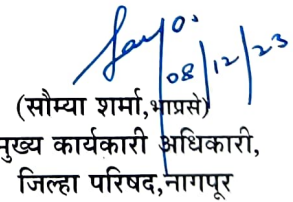 08/12/23
(सौम्या शर्मा,भाप्रसे)
मुख्य कार्यकारी अधिकारी,
जिल्हा परिषद,नागपूर